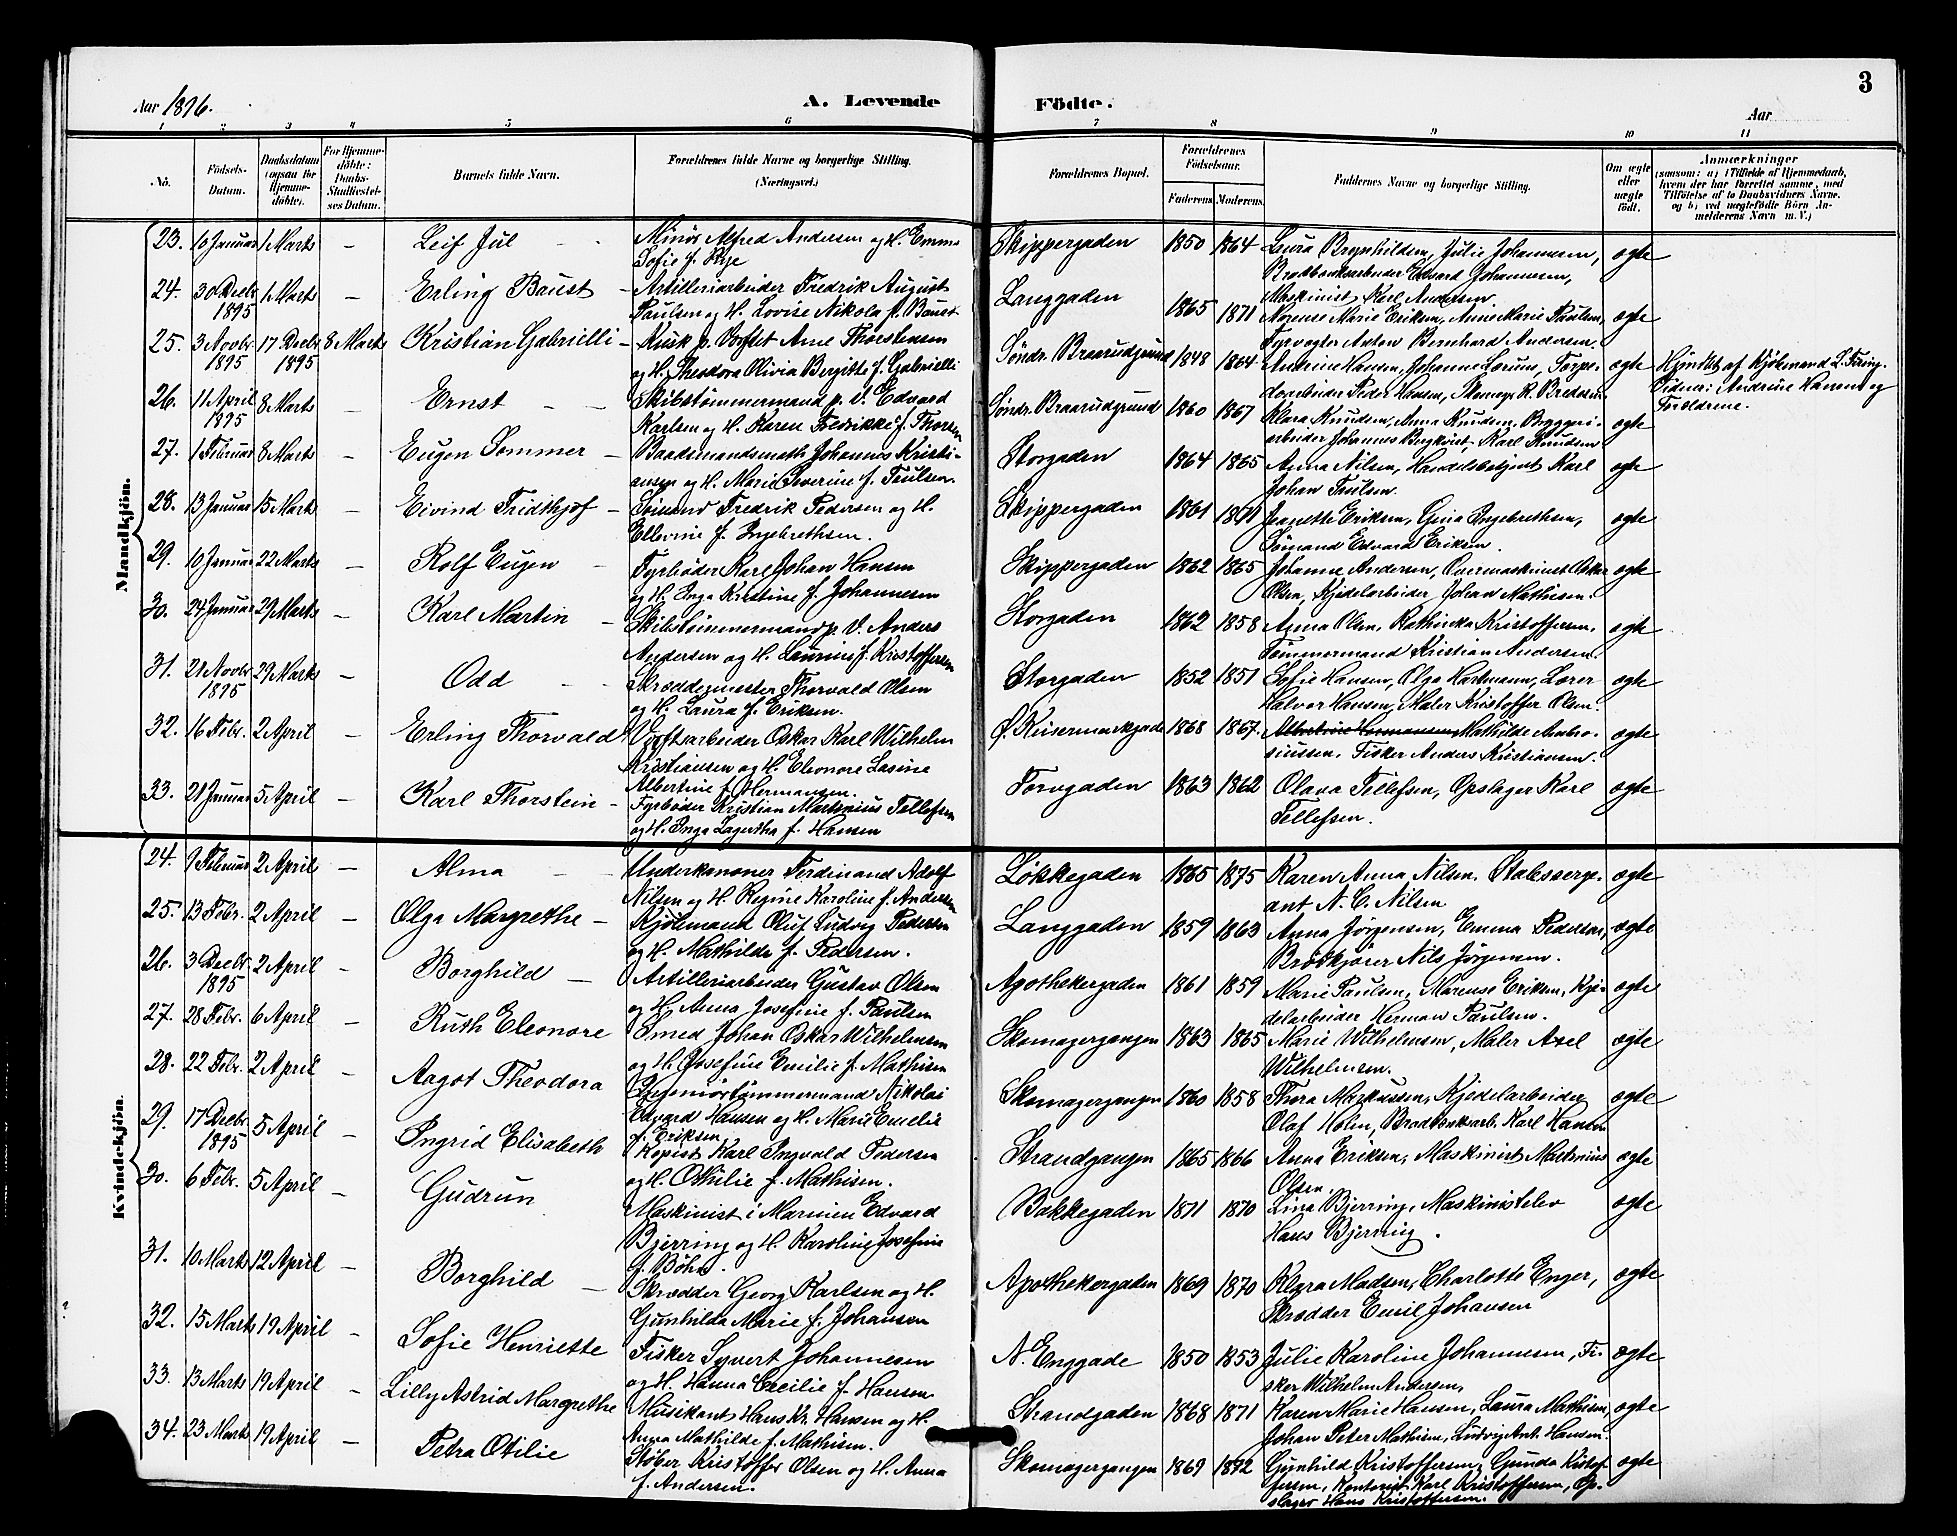 3
Aar 1896.
A. Levende
Födte.
Aar
1 2 3 4 5 6 7 8 9 10 11
No.
Födsels-
Datum.
Daabsdatum
(ogsaa for
Hjemme-
döbte).
For Hjemme-
döbte:
Daabs-
Stadfæstel-
ses Datum.
Barnets fulde Navn.
Forældrenes fulde Navne og borgerlige Stilling.
(Næringsvei.)
Forældrenes Bopæl.
Forældrenes
Födselsaar.
Faderens
Moderens
Faddernes Navne og borgerlige Stilling.
Om ægte
eller
uægte
födt.
Anmærkninger
(saasom: a) i Tilfælde af Hjemmedaab,
hvem der har forrettet samme, med
Tilföielse af to Daabsvidners Navne,
og b) ved uægtefödte Börn An-
melderens Navn m. V.)
Mandkjön.
23. 10 Januar 1 Marts – Leif Jül – Minör Alfred Andersen og H. Emma
Sofie f. Rye
Skippergaden 1850 1864 Laura Brynhildsen, Julie Johannesen,
Brødbænkarbeider Edvard Johannesen,
Maskinist Karl Andersen.
ægte
24. 30 Decbr. 1895 1 Marts – Erling Baust – Artilleriarbeider Fredrik August
Paulsen og H. Lovise Nikola f. Baust
Langgaden 1865 1871 Norense Marie Eriksen, Anne Marie Paulsen,
Fyrvogter Anton Bernhard Andersen.
ægte
25. 3 Novbr. 1895 17 Decbr. 1895 8 Marts Kristian Gabrielli – Kusk p. Værftet Arne Thorstensen
og H. Theodora Olivia Bergitte f. Gabrielli
Søndr. Braarudgrund 1848 1864 Andrine Hansen, Johanne Lorüns, Torpe-
doarbeider Peder Hansen, R. Bredesen
ægte
Hjmdbt af Kjøbmand L. Fring.
Vidner: Andrine Hansen og
Forældrene.
26. 11 April 1895 8 Marts – Ernst – Skibstømmermand p. V. Edvard
Karlsen og H. Karen Fredrikke f. Thorsen
Søndr. Braarudgrund 1860 1867 Klara Knudsen, Anna Knudsen, Bryggeri-
arbeider Johannes Bergkvist, Karl Knudsen
ægte
27. 1 Februar 8 Marts – Eugen Sommer – Baadsmandsmath Johannes Kristi-
ansen og H. Marie Severine f. Paulsen.
Storgaden 1864 1865 Anna Nilsen, Handelsbetjent Karl
Johan Paulsen.
ægte
28. 13 Januar 15 Marts – Eivind Fridthjof – Sømand Fredrik Pedersen og H.
Ellevine f. Ingebrethsen.
Skippergaden 1861 1871 Jeanette Eriksen, Gina Ingebrethsen,
Sømand Edvard Eriksen.
ægte
29. 10 Januar 22 Marts – Rolf Eugen – Fyrbøder Karl Johan Hansen
og H. Inga Kristine f. Johannesen
Skippergaden 1862 1865 Johanne Andersen, Overmaskinist Oskar
Olsen, Kjedelarbeider Johan Mathisen.
ægte
30. 24 Januar 29 Marts – Karl Martin – Skibstømmermand p. V. Anders
Andersen og H. Laurine f. Kristoffersen
Storgaden 1862 1858 Anna Olsen, Kathinka Kristoffersen,
Tømmermand Kristian Andersen.
ægte
31. 21 Novbr. 1895 29 Marts – Odd – Skræddermester Thorvald Olsen
og H. Laura f. Eriksen.
Storgaden 1852 1851 Sofie Hansen, Olga Hartmann, Lærer
Halvor Hansen, Maler Kristoffer Olsen.
ægte
32. 16 Febr. 2 April – Erling Thorvald Værftsarbeider Oskar Karl Wilhelm
Kristiansen og H. Eleonore Lasine
Albertine f. Hermansen.
Ø. Keisermarkgade 1868 1867. Mathilde Ambro-
siussen, Fisker Anders Kristiansen.
ægte
33. 21 Januar 5 April – Karl Thorstein – Fyrbøder Kristian Martinius Tellefsen
og H. Inga Lagertha f. Hansen
Torvgaden 1863 1862 Olava Tellefsen, Opslager Karl
Tellefsen.
ægte
Kvindekjön.
24. 9 Februar 2 April – Alma – Underkanoner Ferdinand Adolf
Nilsen og H. Regine Karoline f. Andersen
Løkkegaden 1865 1875 Karen Anna Nilsen, Stabsserg-
ant N. C. Nilsen
ægte
25. 13 Febr. 2 April – Olga Margrethe – Kjøbmand Oluf Ludvig Pedersen
og H. Mathilde f. Pedersen.
Langgaden 1859 1863 Anna Jørgensen, Emma Pedersen,
Brødkjører Nils Jørgensen.
ægte
26. 3 Decbr. 1895 2 April – Borghild – Artilleriarbeider Gustav Olsen
og H. Anna Josefine f. Paulsen
Apothekergaden 1861 1859 Marie Paulsen, Marense Eriksen, Kje-
delarbeider Herman Paulsen.
ægte
27. 28 Febr. 6 April – Ruth Eleonore Smed Johan Oskar Wilhelmsen
og H. Josefine Emilie f. Mathisen
Skomagergangen 1863 1865 Marie Wilhelmsen, Maler Axel
Wilhelmsen.
ægte
28. 22 Febr. 2 April – Aagot Theodora Tømmermand Nikolai
Edvard Hansen og H. Marie Emilie
f. Eriksen
Skomagergangen 1860 1858 Thora Markussen, Kjedelarbeider
Olaf Holm, Brødbænkarb. Karl Hansen
ægte
29. 17 Decbr. 1895 5 April – Ingrid Elisabeth Kopist Karl Ingvald Pedersen
og H. Othilie f. Mathisen.
Strandgangen 1865 1866 Anna Eriksen, Maskinist Martinius
Olsen.
ægte
30. 6 Febr. 5 April – Gudrun Maskinist i Marinen Edvard
Bjerring og H. Karoline Josefine
f. Böhn.
Bakkegaden 1871 1870 Lina Bjerring, Maskinistelev
Hans Bjerring.
ægte
31. 10 Marts 12 April – Borghild – Skrædder Georg Karlsen og H.
Gunhilda Marie f. Johansen
Apothekergaden 1869 1870 Klara Madsen, Charlotte Enger,
Skrædder Emil Johansen
ægte
32. 15 Marts 19 April – Sofie Henriette Fisker Syvert Johannesen
og H. Hanna Cecilie f. Hansen
N. Enggade 1850 1853 Julie Karoline Johannesen, Fi-
sker Wilhelm Andersen,
ægte
33. 13 Marts 19 April – Lilly Astrid Margrethe Musikant Hans Kr. Hansen og H.
Anna Mathilde f. Mathisen.
Strandgaden 1868 1871 Karen Marie Hansen, Laura Mathisen,
Johan Peter Mathisen, Ludvig Ant. Hansen.
ægte
34. 23 Marts 19 April – Petra Otilie Støber Kristoffer Olsen og H. Anna
f. Andersen.
Skomagergangen 1869 1872 Gunhild Kristoffersen, Gunda Kristof-
fersen, Kontorist Karl Kristoffersen, Op-
slager Hans Kristoffersen.
ægte